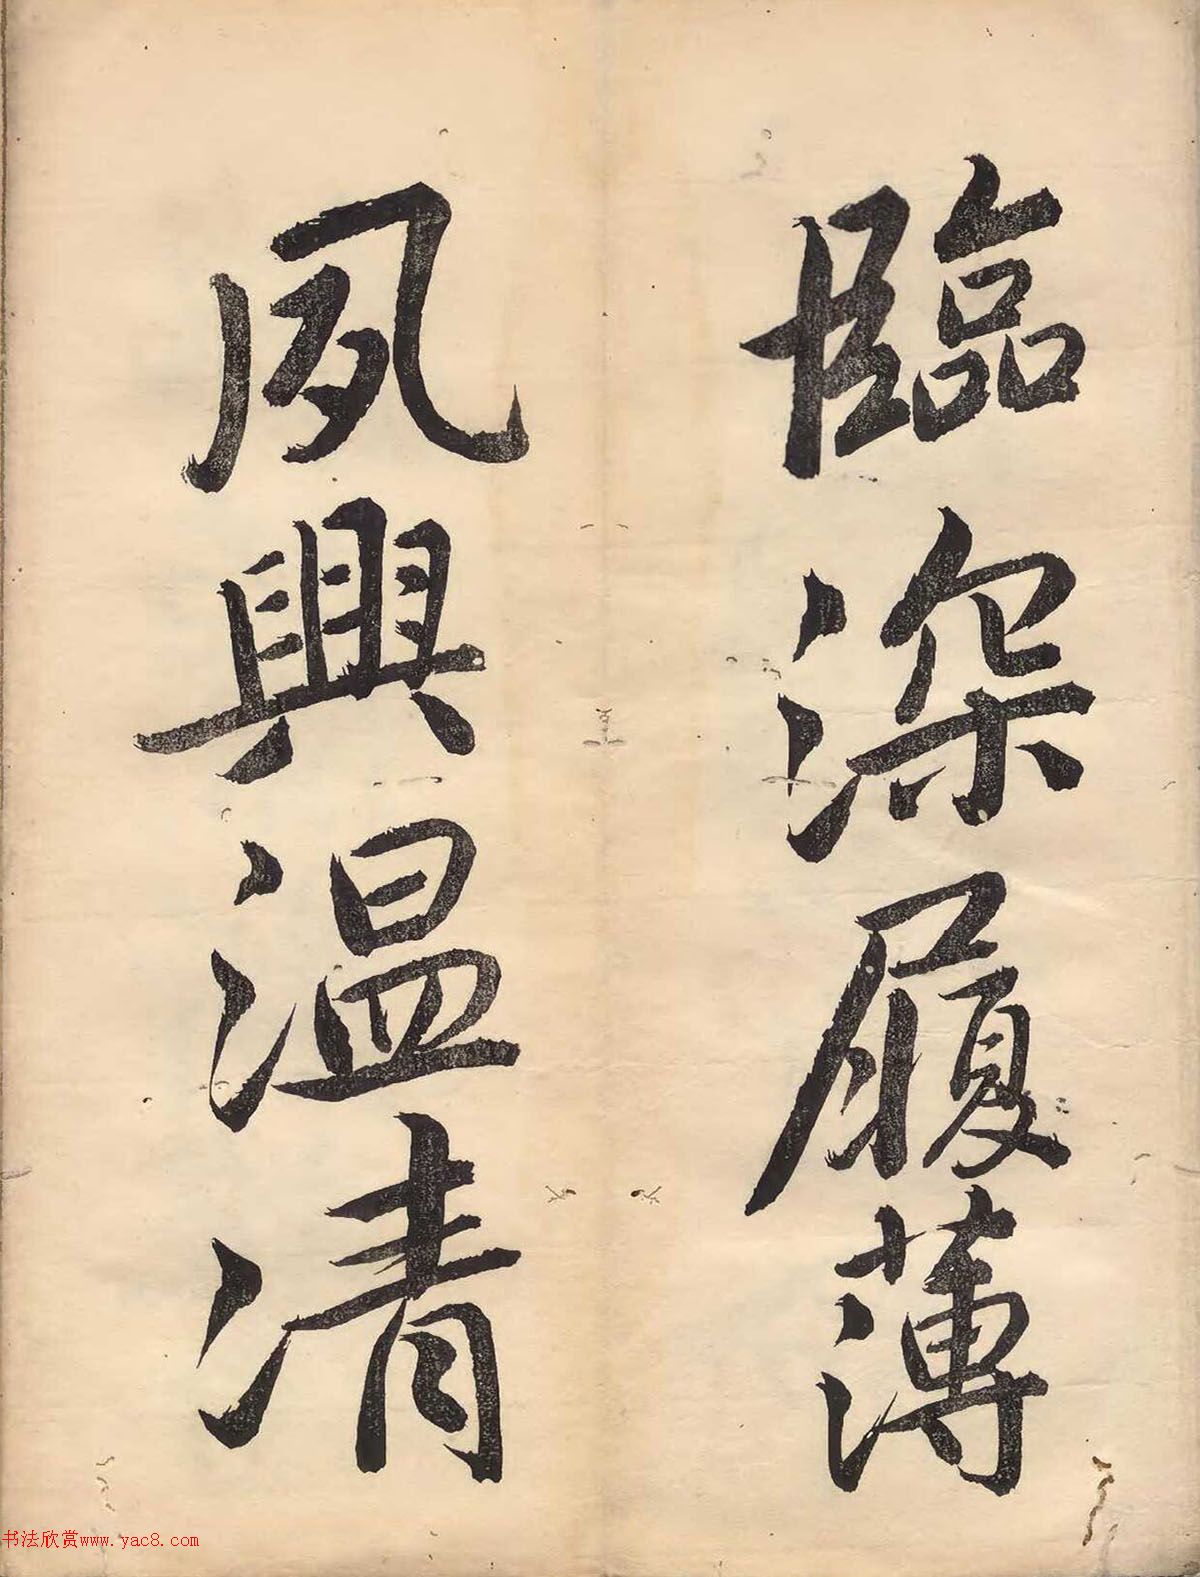 臨深履薄
夙興温凊
书法欣赏www.yac8.com